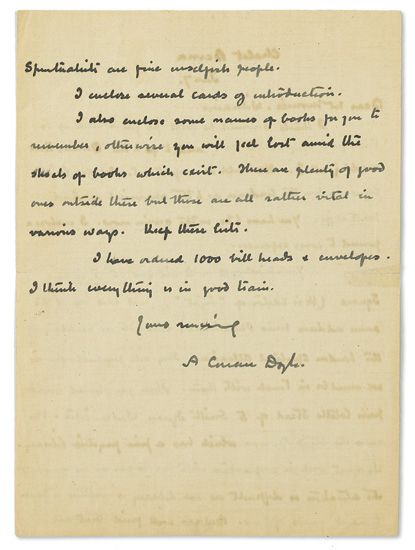 Spiritualists are fine unselfish people.
I enclose several cards of introduction.
I also enclose some names of books for you to
remember, otherwise you will feel lost amid the
shoals of books which exist. There are plenty of good
ones outside these but those are all rather vital in
various ways. Keep these lists.
I have ordered 1000 bill heads & envelopes.
I think everything is in good train.
Yours sincerely
A Conan Doyle.